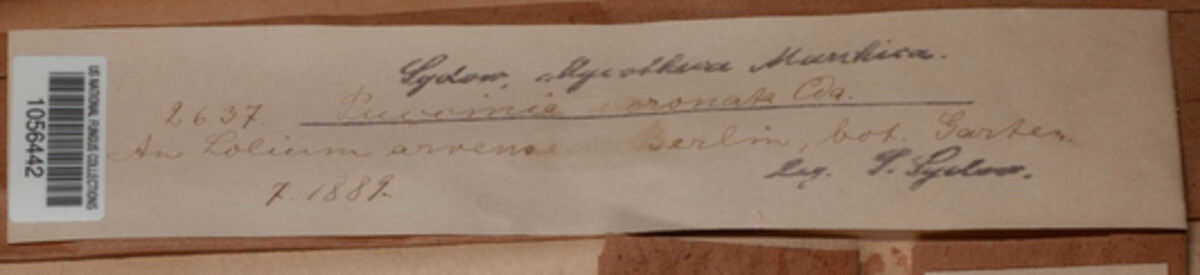 Sydow, Mycotheca Marchica.
2637. Puccinia coronata Cda.
An Lolium arvense. Berlin, bot. Garten.
7. 1889. Leg. P. Sydow.
US NATIONAL FUNGUS COLLECTIONS
1056442